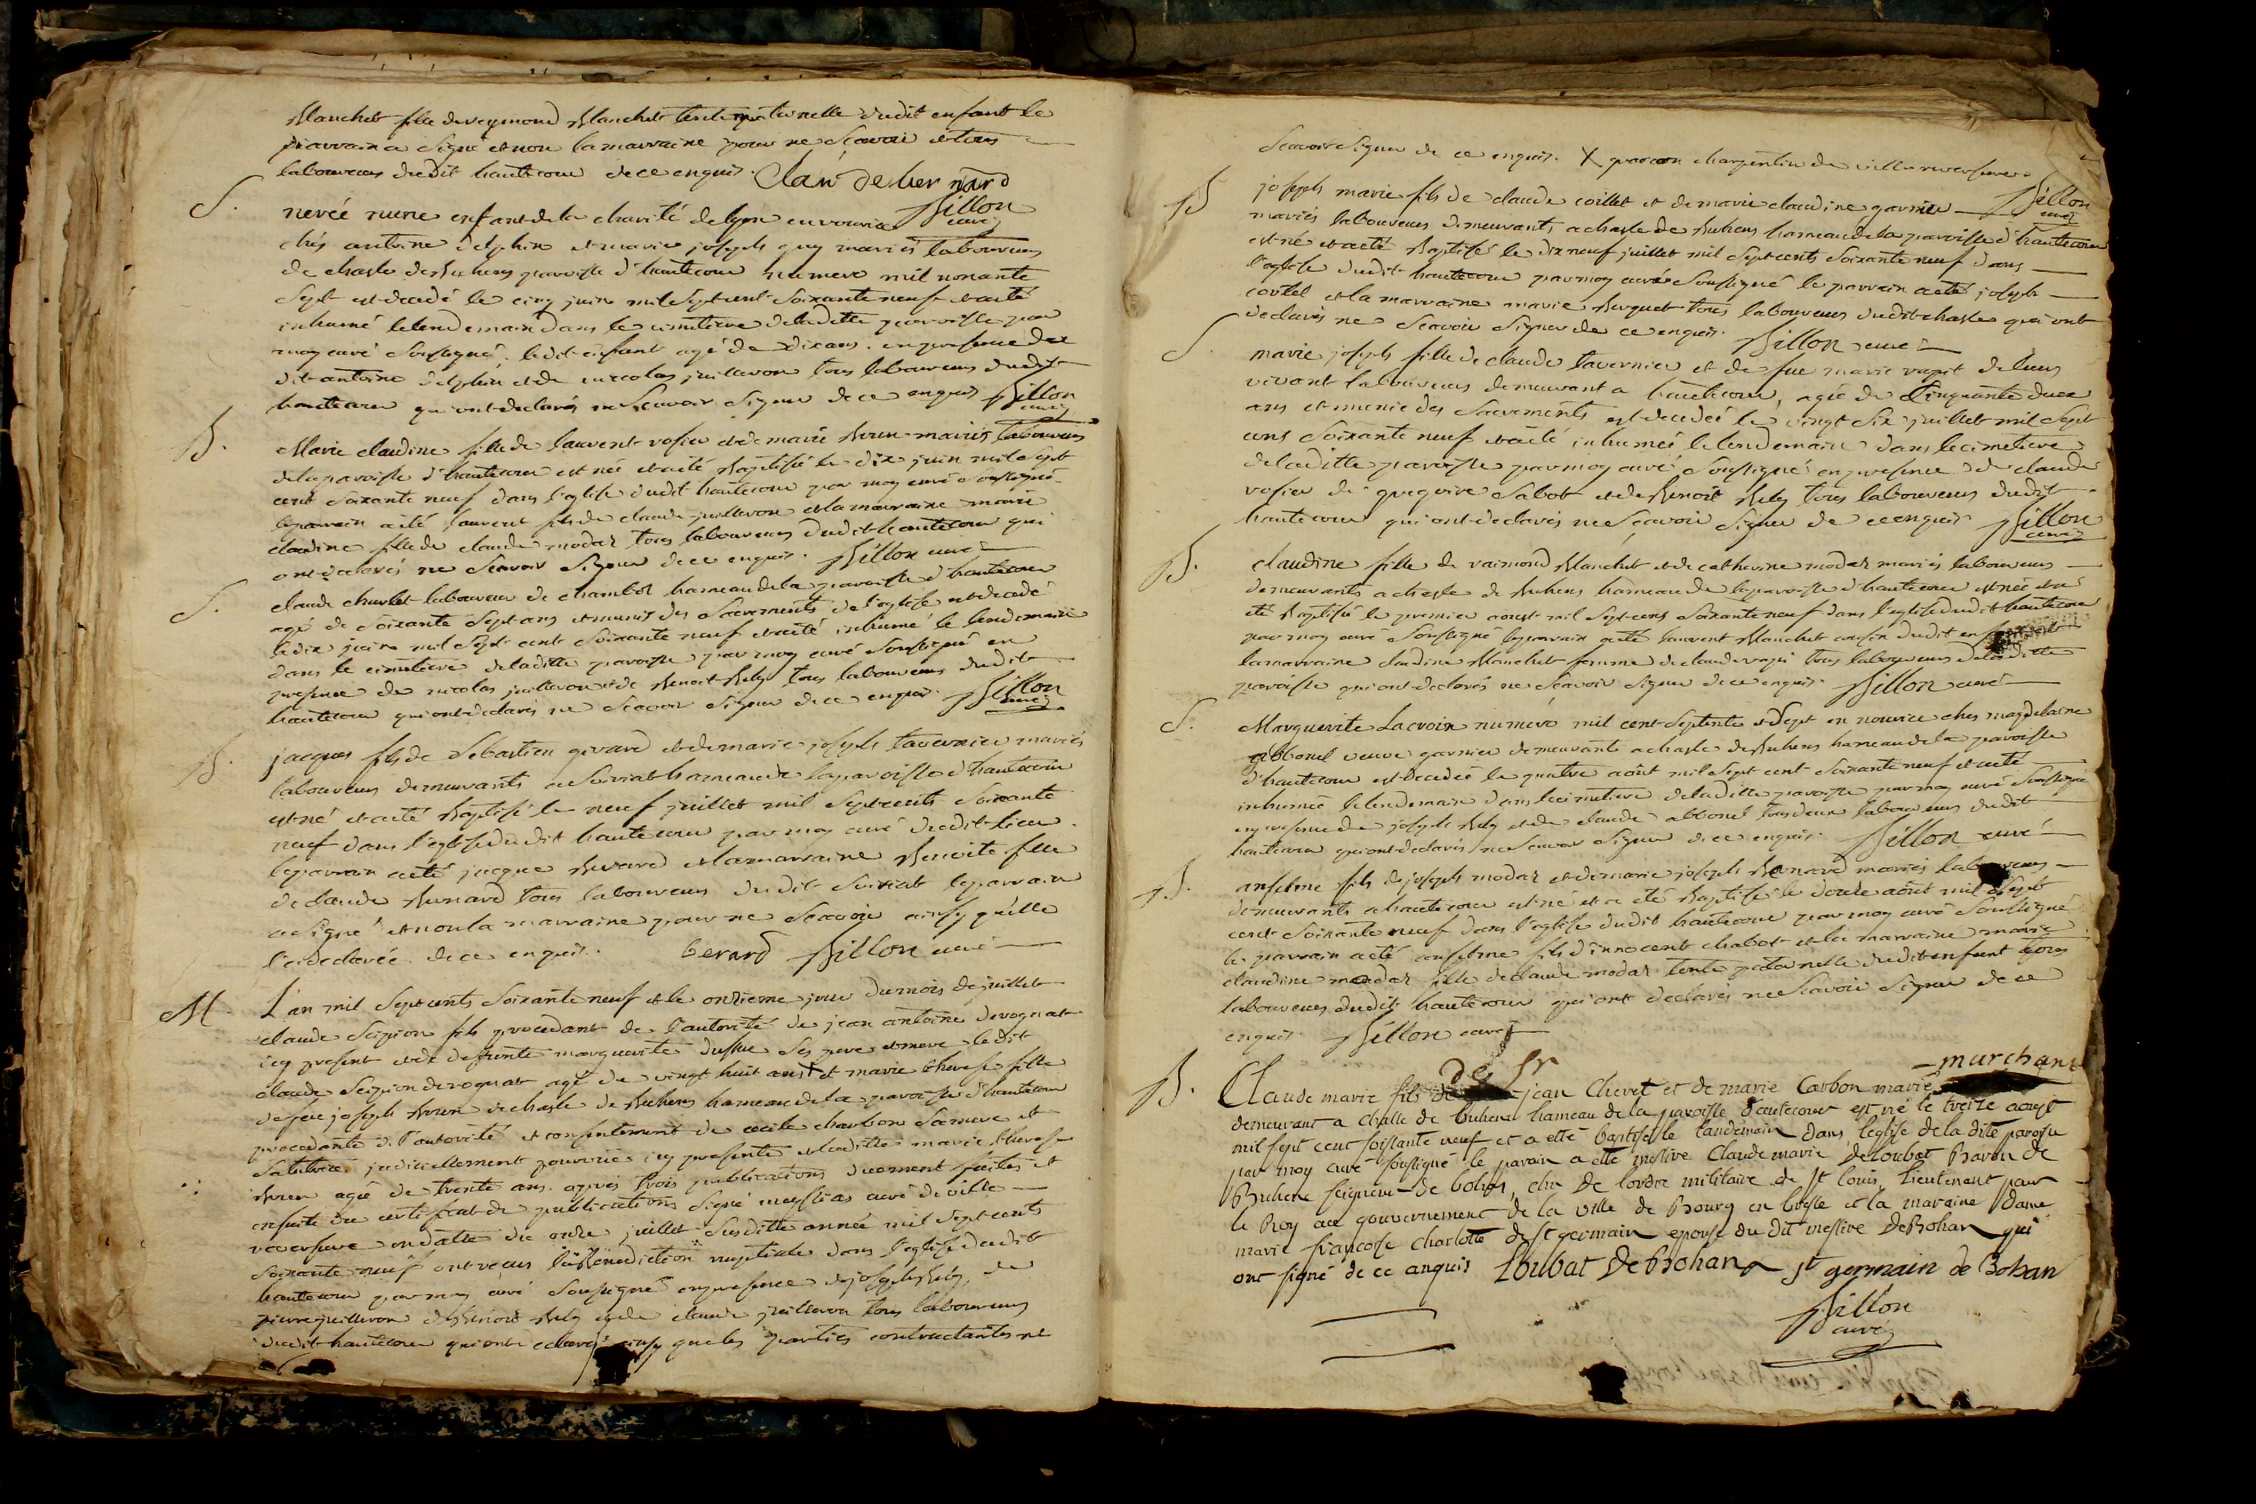 Blanchet fille de reymond Blanchet tente paternelle dudit enfant le
parrain a signé et non la marraine pour ne scavoir et tous
laboureurs dudit hautecour de ce enquis. Claude bernard
Billon curé
S. neréé mine enfant de la charité de lyon en nourice
chés antoine delphin et marie joseph guy mariés laboureurs
de chasle de Buhens paroisse d'hautecour numero mil nonante
sept est decedé le cinq juin mil sept cent soixante neuf et a eté
inhumé le lendemain dans le cimetiere de ladite paroisse par
moy curé soussigné. ledit enfant agé de dix ans. en presence de
dit antoine delphin et de nicolas juilleron tous laboureurs dudit
hautecour qui ont declarés ne scavoir signer de ce enquis Billon
curé
B. Marie claudine fille de laurent rosier et de marie Brun mariés laboureurs
de la paroisse d'hautecour est née et a eté Baptisée le dix juin mil sept
cent soixante neuf dans l'eglise dudit hautecour par moy curé soussigné
le parrain a eté laurent fils de claude juilleron et la marraine marie
claudine fille de claude modaz tous laboureurs dudit hautecour qui
ont declarés ne scavoir signer de ce enquis. Billon curé
S. claude churlet laboureur de chambol hameau de la paroisse d'hautecour
agé de soixante sept ans et munis des sacrements de l'eglise est decedé
le dix juin mil sept cent soixante neuf et a eté inhumé le lendemain
dans le cimetiere de ladite paroisse par moy curé soussigné en
presence de nicolas juilleron et de Benoit Rely tous laboureurs dudit
hautecour qui ont declarés ne scavoir signer de ce enquis. Billon
curé
B. jacques fils de Sebastien girard et de marie joseph tavernier mariés
laboureurs demeurants a Suiriat hameau de la paroisse d'hautecour
est né et a eté Baptisé le neuf juillet mil sept cents soixante
neuf dans l'eglise dudit hautecour par moy curé dudit lieu.
le parrain a eté jacque Berard et la marraine Benoite fille
de claude Bernard tous laboureurs dudit Suiriat le parrain
a signé et non la marraine pour ne scavoir ainsy qu'elle
l'a declarée de ce enquis. berard Billon curé
M. L'an mil sept cents soixante neuf et le onzieme jour du mois de juillet
claude Scipion fils procedant de l'autorité de jean antoine derognat
icy present et de deffunte marguerite duffue ses pere et mere ledit
claude Scipion derognat agé de vingt huit ans X et marie therese fille
de feu joseph Brun de chasle de Buhens hameau de la paroisse d'hautecour
procedante de l'autorité et consentement de cecile charbon sa mere et
sa tutrice judiciellement pourvüe icy presente et ladite marie therese
Brun agée de trente ans. apres trois publications duement faites et
ensuite du certificat de publications signé curé de ville
reversure en datte du onze juillet susditte année mil sept cents
soixante neuf ont recus la Benediction nuptiale dans l'eglise dudit
hautecour par moy curé soussigné en presence de joseph Rely de
pierre juilleron de Benoit Rely et de claude juilleron tous laboureurs
dudit hautecour qui ont declarés ainsy que les parties contractantes ne
scavoir signer de ce enquis. X garcon charpentier de ville reversure.
Billon
curé
B joseph marie fils de claude coillet et de marie claudine garnier
mariés laboureurs demeurants a chasle de Buhens hameau de la paroisse d'hautecour
est né et a eté Baptisé le dix neuf juillet mil sept cents soixante neuf dans
l'eglise dudit hautecour par moy curé soussigné le parrain a eté joseph
cortel et la marraine marie Burquet tous laboureurs dudit chasle qui ont
declarés ne scavoir signer de ce enquis. Billon curé
S. marie joseph fille de claude tavernier et de fue marie de leurs
vivant laboureurs demeurant a hautecour, agée de Cinquante deux
ans et munie des sacrements est decedeé le vingt six juillet mil sept
cens soixante neuf et a eté inhumeé le lendemain dans le cimetiere
de laditte paroisse par moy curé soussigné en presence de claude
rosier de gregoire Sabot et de Benoit Rely tous laboureurs dudit
hautecour qui ont declarés ne scavoir signer de ce enquis Billon
curé
B. claudine fille de raimond Blanchet et de catherine modaz mariés laboureurs
demeurants a chasle de Buhens hameau de la paroisse d'hautecour est née et a
eté Baptisée le premier aoust mil sept cens soixante neuf dans l'eglise dudit hautecour
par moy curé soussigné le parrain a eté laurent Blanchet cousin dudit enfant et
la marraine claudine Blanchet femme de claude tous laboureurs de laditte
paroisse qui ont declarés ne scavoir signer de ce enquis. Billon curé
S. Marguerite Lacroix numero mil cent septente et sept en nourice ches magdelaine
abbonel veuve garnier demeurante a chasle de Buhens hameau de la paroisse
d'hautecour est decedée le quatre août mil sept cent soixante neuf et a eté
inhumeé le lendemain dans le cimetiere de laditte paroisse par moy curé soussigné
en presence de joseph Rely et de claude abbonel tous deux laboureurs dudit
hautecour qui ont declarés ne scavoir signer de ce enquis. Billon curé
B. anselme fils de joseph modaz et de marie joseph Bernard mariés laboureurs
demeurants a hautecour est né et a eté Baptisé le douze août mil sept
cent soixante neuf dans l'eglise dudit hautecour par moy curé soussigné
le parrain a eté anselme fils d'innocent chabot et la marraine marie
claudine modaz fille de claude modaz tente paternelle dudit enfant tous
laboureurs dudit hautecour qui ont declarés ne scavoir signer de ce
enquis. Billon curé
B. Claude marie fils de sr jean Chevet et de marie Carbon mariés marchant
demeurant a chasle de buhens hameau de la paroisse d'autecour est né le treize aoust
mil sept cent soissante neuf et a etté baptisé le landemain dans l'eglise de la dite paroisse
par moy curé soussigné le parain a etté messire Claude marie Deloubat Baron de
Buhene seigneur de bohas, chr De lordre militaire de st louis, Lieutenant pour
le Roy au gouvernement de la ville de Bourg en bresse et la maraine Dame
marie françoise charlotte de st germain epouse du dit messire DeBohan qui
ont signé de ce anquis Loubat DeBohan st germain de Bohan
Billon
curé